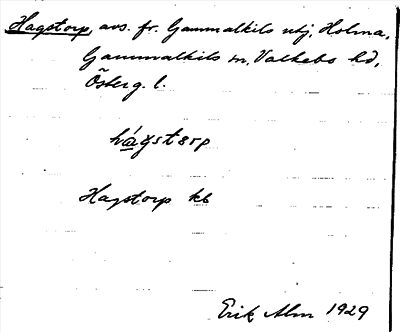 Hagstorp, avs. fr. Gammalkils utj, Holma,
Gammalkils sn, Valkebo hd,
Österg. l.
hágstorp
Hagstorp kb
Erik Alm 1929